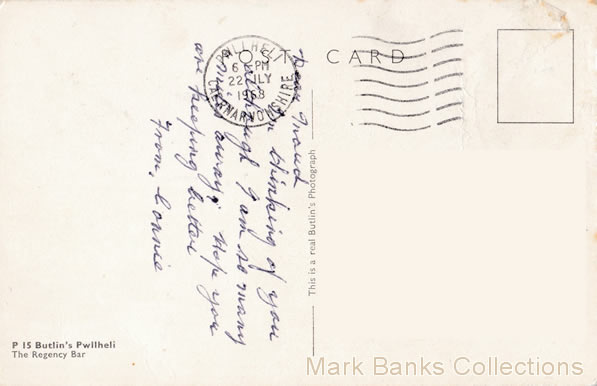 POST CARD
PWLLHELI
6 PM
22 JLY
1968
CAERNARVONSHIRE
Dear Maud
Am thinking of you
although I am so many
miles away; Hope you
are keeping better
From, Connie
This is a real Butlin's Photograph
P 15 Butlin's Pwllheli
The Regency Bar
Mark Banks Collections